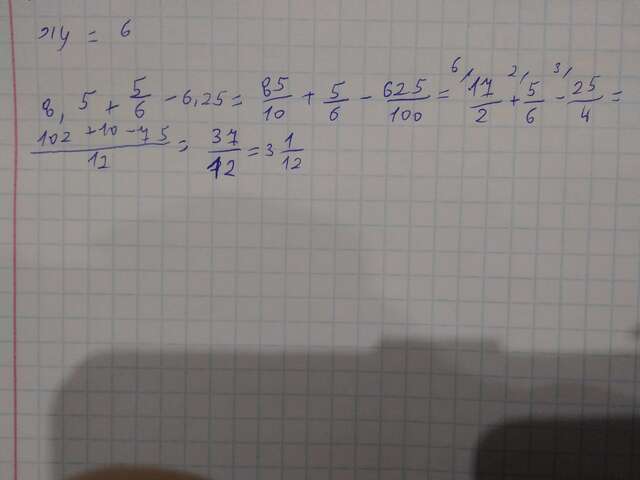 жу = 6
8,5 + 5/6 - 6,25 = 85/10 + 5/6 - 625/100 = 6/ 17/2 + 2/ 5/6 - 3/ 25/4 =
102 + 10 - 75/12 = 37/12 = 3 1/12